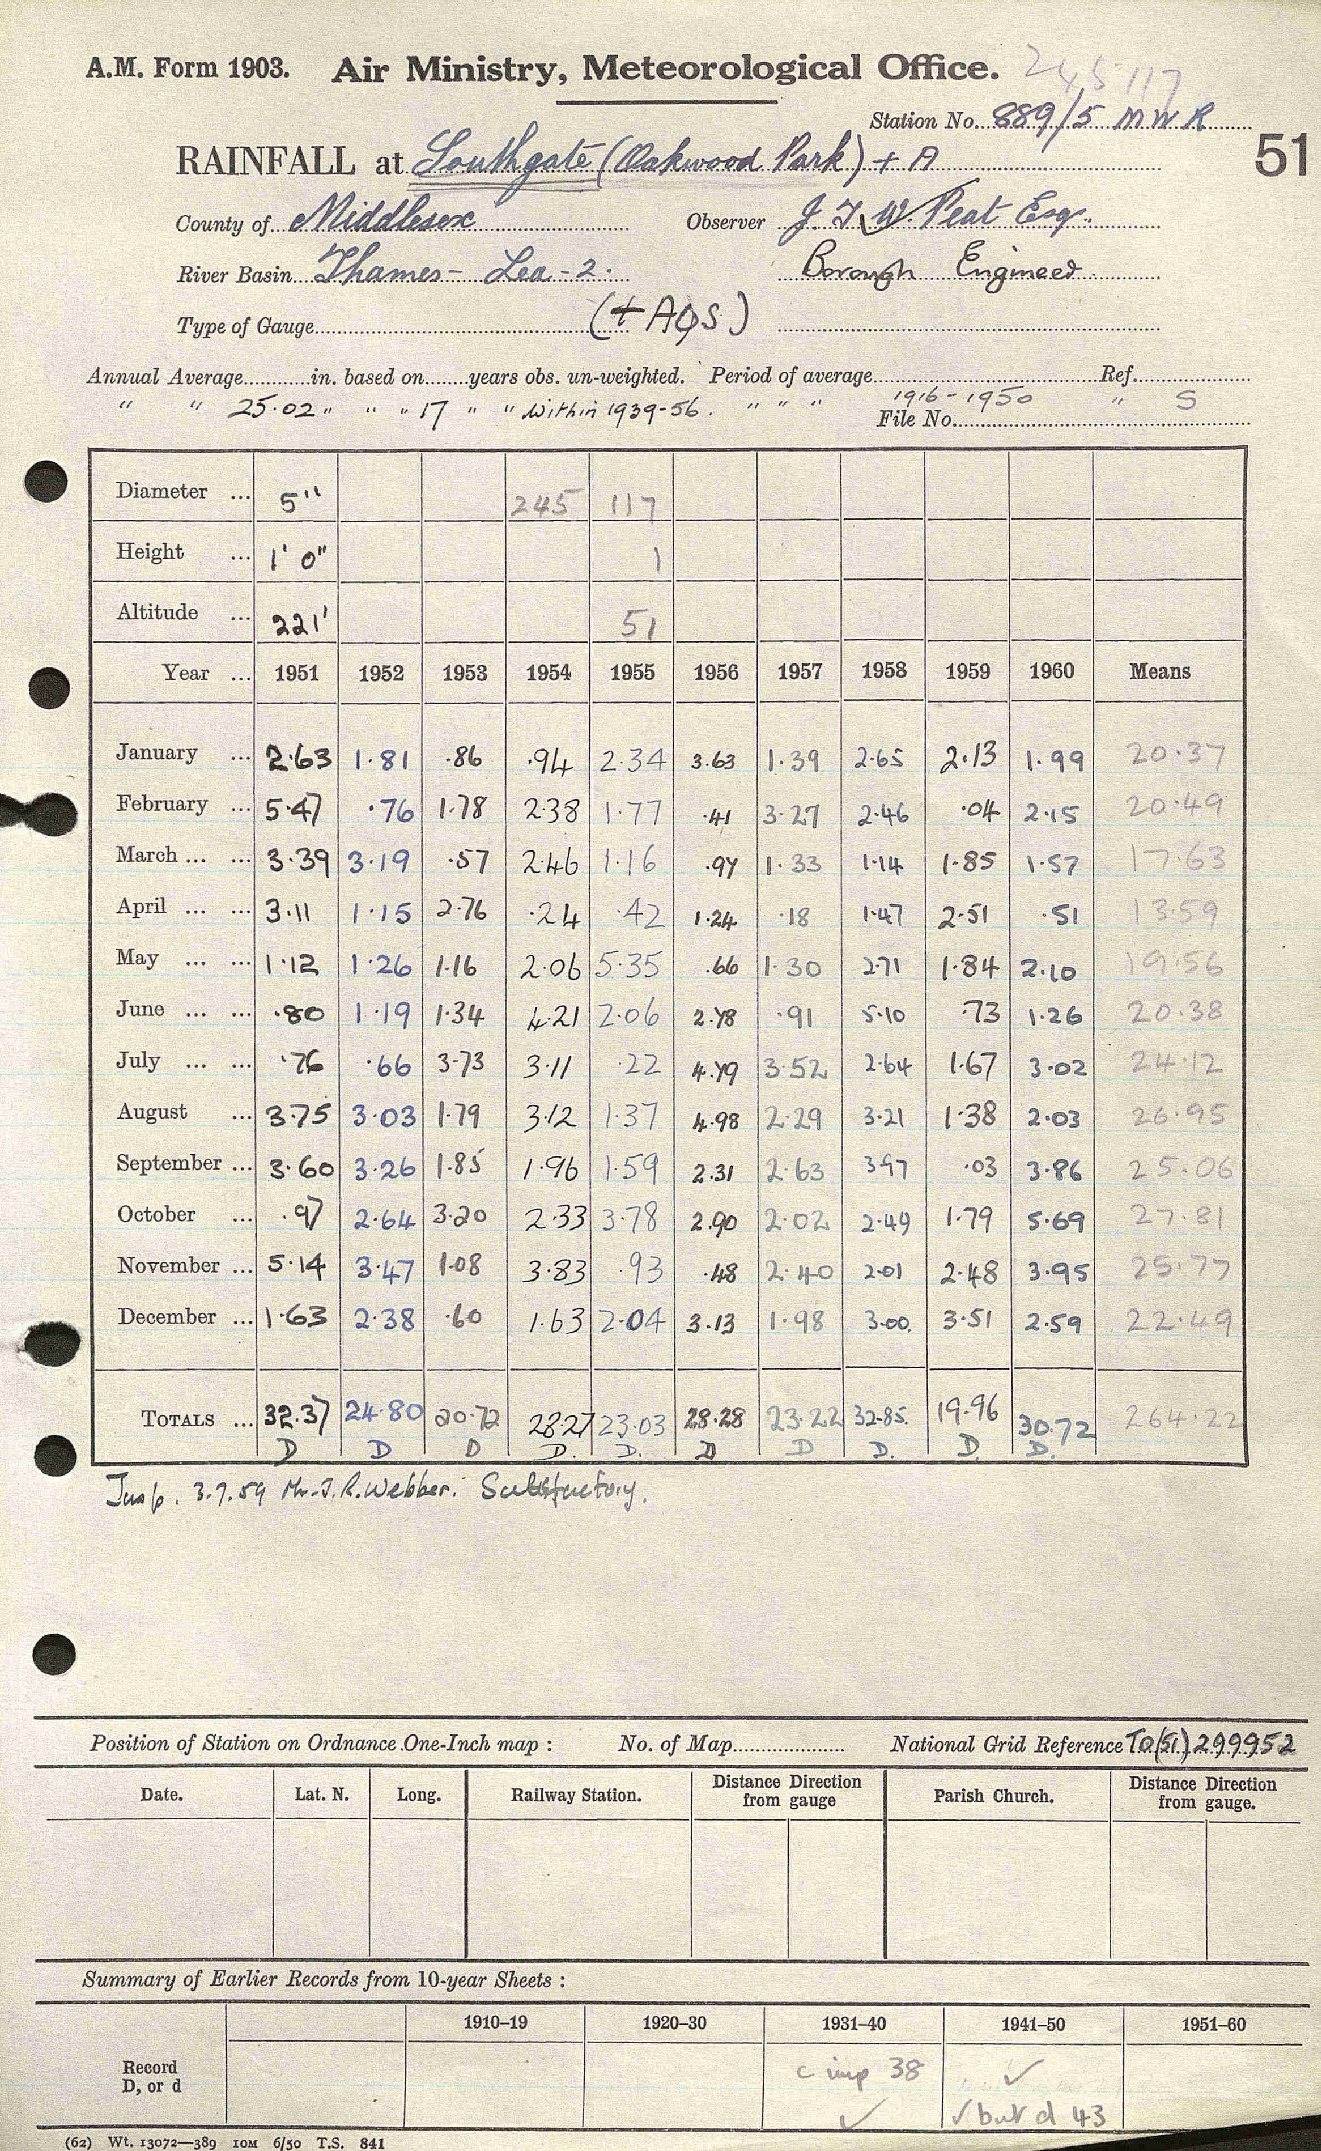 245117
A.M. Form 1903. Air Ministry, Meteorological Office.
Station No. 889/5 M W R
RAINFALL at Southgate (Oakwood Park) + A
51
County of Middlesex Observer J. T. W. Peat Esq.
River Basin Thames - Lea - 2. Borough Engineer
Type of Gauge (+ AQS)
Annual Average in. based on years obs. un-weighted. Period of average Ref.
" " 25.02 " " " 17 " " Within 1939-56. " " " 1916-1950 " S
File No.
Diameter ... 5" 245 117
Height ... 1' 0" 1
Altitude ... 221' 51
Year ... 1951 1952 1953 1954 1955 1956 1957 1958 1959 1960 Means
January ... 2.63 1.81 .86 .94 2.34 3.63 1.39 2.65 2.13 1.99 20.37
February ... 5.47 .76 1.78 2.38 1.77 .41 3.27 2.46 .04 2.15 20.49
March ... ... 3.39 3.19 .57 2.46 1.16 .97 1.33 1.14 1.85 1.57 17.63
April ... ... 3.11 1.15 2.76 .24 .42 1.24 .18 1.47 2.51 .51 13.59
May ... ... 1.12 1.26 1.16 2.06 5.35 .66 1.30 2.71 1.84 2.10 19.56
June ... ... .80 1.19 1.34 4.21 2.06 2.78 .91 5.10 .73 1.26 20.38
July ... ... .76 .66 3.73 3.11 .22 4.79 3.52 2.64 1.67 3.02 24.12
August ... 3.75 3.03 1.79 3.12 1.37 4.98 2.29 3.21 1.38 2.03 26.95
September ... 3.60 3.26 1.85 1.96 1.59 2.31 2.63 3.97 .03 3.86 25.06
October ... .97 2.64 3.20 2.33 3.78 2.90 2.02 2.49 1.79 5.69 27.81
November ... 5.14 3.47 1.08 3.83 .93 .48 2.40 2.01 2.48 3.95 25.77
December ... 1.63 2.38 .60 1.63 2.04 3.13 1.98 3.00 3.51 2.59 22.49
TOTALS ... 32.37 24.80 20.72 28.27 23.03 28.28 23.22 32.85 19.96 30.72 264.22
D D D D. D. D D D. D. D.
Insp. 3.7.59 Mr. J. R. Webber. Satisfactory.
Position of Station on Ordnance One-Inch map : No. of Map National Grid Reference TQ(51) 299952
Date. Lat. N. Long. Railway Station. Distance Direction from gauge Parish Church. Distance Direction from gauge.
Summary of Earlier Records from 10-year Sheets :
1910–19 1920–30 1931–40 1941–50 1951–60
Record D, or d c imp 38 ✓
✓ ✓ but d 43
(62) Wt. 13072—389 10M 6/50 T.S. 841